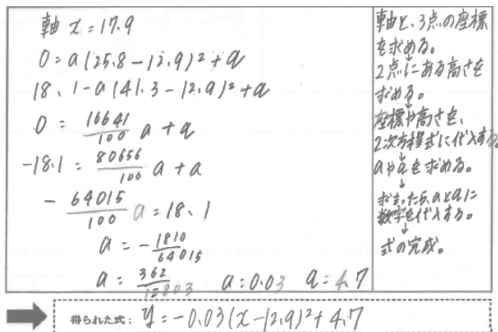 軸 x=17.9
0=a(25.8-12.9)²+q
18.1-a(41.3-12.9)²+q
0= 16641/100 a+q
-18.1= 80656/100 a+a
- 64015/100 a=18.1
a=- 1810/64015
a= 362/12803 a=0.03 q=4.7
軸と、3点の座標
を求める。
↓
2点にある高さを
求める。
↓
座標や高さを、
2次方程式に代入する
↓
aやqを求める。
↓
求まったら、aとqに
数字を代入する。
↓
式の完成。
得られた式: y=-0.03(x-12.9)²+4.7